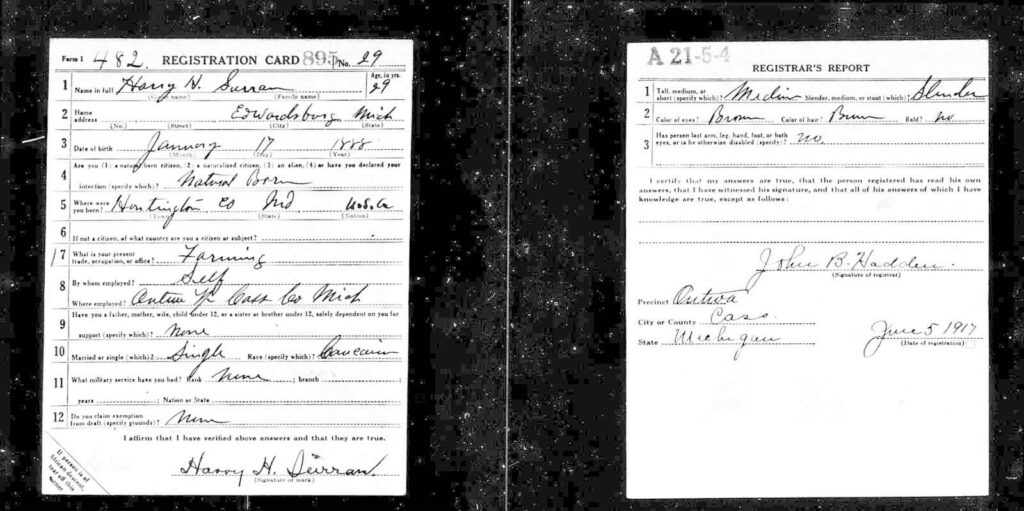 Form 1 482. REGISTRATION CARD 895 No. 29
1 Name in full Harry H. Surran Age, in yrs. 29
(Given name) (Family name)
2 Home address Edwardsburg Mich
(No.) (Street) (City) (State)
3 Date of birth January 17 1888
(Month) (Day) (Year)
Are you (1) a natural born citizen, (2) a naturalized citizen, (3) an alien, (4) or have you declared your
4 intention (specify which)? Natural Born
5 Where were you born? Huntington Co Ind U.S.A
(Town) (State) (Nation)
6 If not a citizen, of what country are you a citizen or subject?
7 What is your present trade, occupation, or office? Farming
8 By whom employed? Self
Where employed? Ontwa Cass Co Mich
9 Have you a father, mother, wife, child under 12, or a sister or brother under 12, solely dependent on you for
support (specify which)? None
10 Married or single (which)? Single Race (specify which)? Caucasian
11 What military service have you had? Rank None ; branch ;
years ; Nation or State
12 Do you claim exemption from draft (specify grounds)? None
I affirm that I have verified above answers and that they are true.
Harry H. Surran
(Signature or mark)
If person is of
African descent,
tear off this
corner
A 21-5-4
REGISTRAR'S REPORT
1 Tall, medium, or short (specify which)? Medium Slender, medium, or stout (which)? Slender
2 Color of eyes? Brown Color of hair? Brown Bald? no
3 Has person lost arm, leg, hand, foot, or both eyes, or is he otherwise disabled (specify)? no.
I certify that my answers are true, that the person registered has read his own
answers, that I have witnessed his signature, and that all of his answers of which I have
knowledge are true, except as follows:
John B. Hadden.
(Signature of registrar)
Precinct Ontwa
City or County Cass.
State Michigan
June 5 1917
(Date of registration)